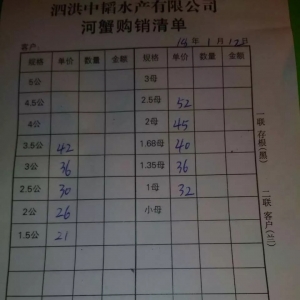 泗洪中韬水产有限公司
河蟹购销清单
客户 14年1月12日
规格 单价 数量 金额 规格 单价 数量 金额
5公 3母
4.5公 2.5母 52
4公 2母 45
3.5公 42 1.68母 40
3公 36 1.35母 36
2.5公 30 1母 32
2公 26 小母
1.5公 21
一联存根(黑)
二联客户(三)